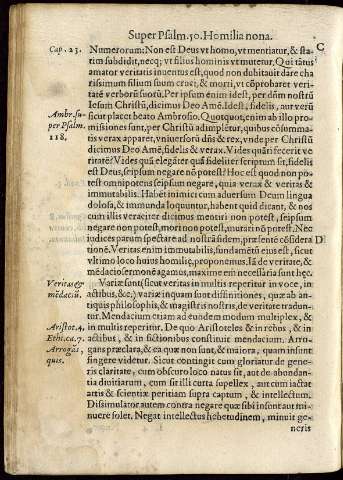 Super Psalm.50. Homilia nona.
Cap. 23.
Numerorum: Non est Deus vt homo, vt mentiatur, & sta-
C
tim subdidit, necq; vt filius hominis vt mutetur. Qui tātus
amator veritatis inuentus est, quod non dubitauit dare cha
rissimum filium suum cruci, & morti, vt cōprobaret veri-
tatē verborū suorū. Per ipsum enim idest, per dñm nostrū
Iesum Christū, dicimus Deo Amē. Idest, fidelis, aut verū
Ambr. su-
per Psalm.
118.
sicut placet beato Ambrosio. Quotquot, enim ab illo pro-
missiones sunt, per Christū adimplētur, quibus cōsumma-
tis verax apparet, vniuersorū dñs & rex, vnde per Christū
dicimus Deo Amē. Idest, fidelis & verax. Vides quā fecerit ve
ritatē? Vides quā elegāter quā fideliter scriptum sit, fidelis
est Deus, seipsum negare nō potest? Hoc est quod non po-
test omnipotens seipsum negare, quia verax & veritas &
immutabilis. Habēt inimici eum aduersum Deum lingua
dolosa, & immunda loquuntur, habent quid dicant, & nos
cum illis veraciter dicimus mentiri non potest, seipsum
negare non potest, mori non potest, mutari nō potest. Nec
iudices parum spectare ad nostrā fidem, præsentē cōsidera
D
tionē. Veritas enim immutabilis, fundamētū eius est, sicut
vltimo loco huius homiliæ, proponemus. Iā de veritate, &
mēdacio sermonē agamos, maxime em̄ necessaria sunt hęc.
Veritas &
mēdaciū.
Variæ sunt (sicut veritas in multis reperitur in voce, in
actibus, &c,) variæ inquam sunt diffinitiones, quæ ab an-
tiquis philosophis, & magistris nostris, de veritate tradun-
tur. Mendacium etiam ad eundem modum multiplex, &
Aristot. 4.
Ethi. ca. 7.
Arrogās,
quis.
in multis reperitur. De quo Aristoteles & in rebus, & in
actibus, & in fictionibus constituit mendacium. Arro-
gans præclara, & ea quæ non sunt, & maiora, quam insunt
fingere videtur. Sicut contingit cum gloriatur de gene-
ris claritate, cum obscuro loco natus sit, aut de abundan-
tia diuitiarum, cum sit illi curta supellex, aut cum iactat
artis & scientiæ peritiam supra captum, & intellectum.
Dissimulator autem contra negare quæ sibi insunt aut mi-
nuere solet. Negat intellectus hebetudinem, minuit ge-
neris